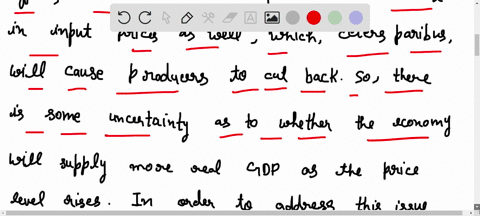 in input prices as well, which, ceters paribus,
will cause producers to cut back. So, there
is some uncertainty as to whether the economy
will supply more real GDP as the price
level rises. In order to address this issue